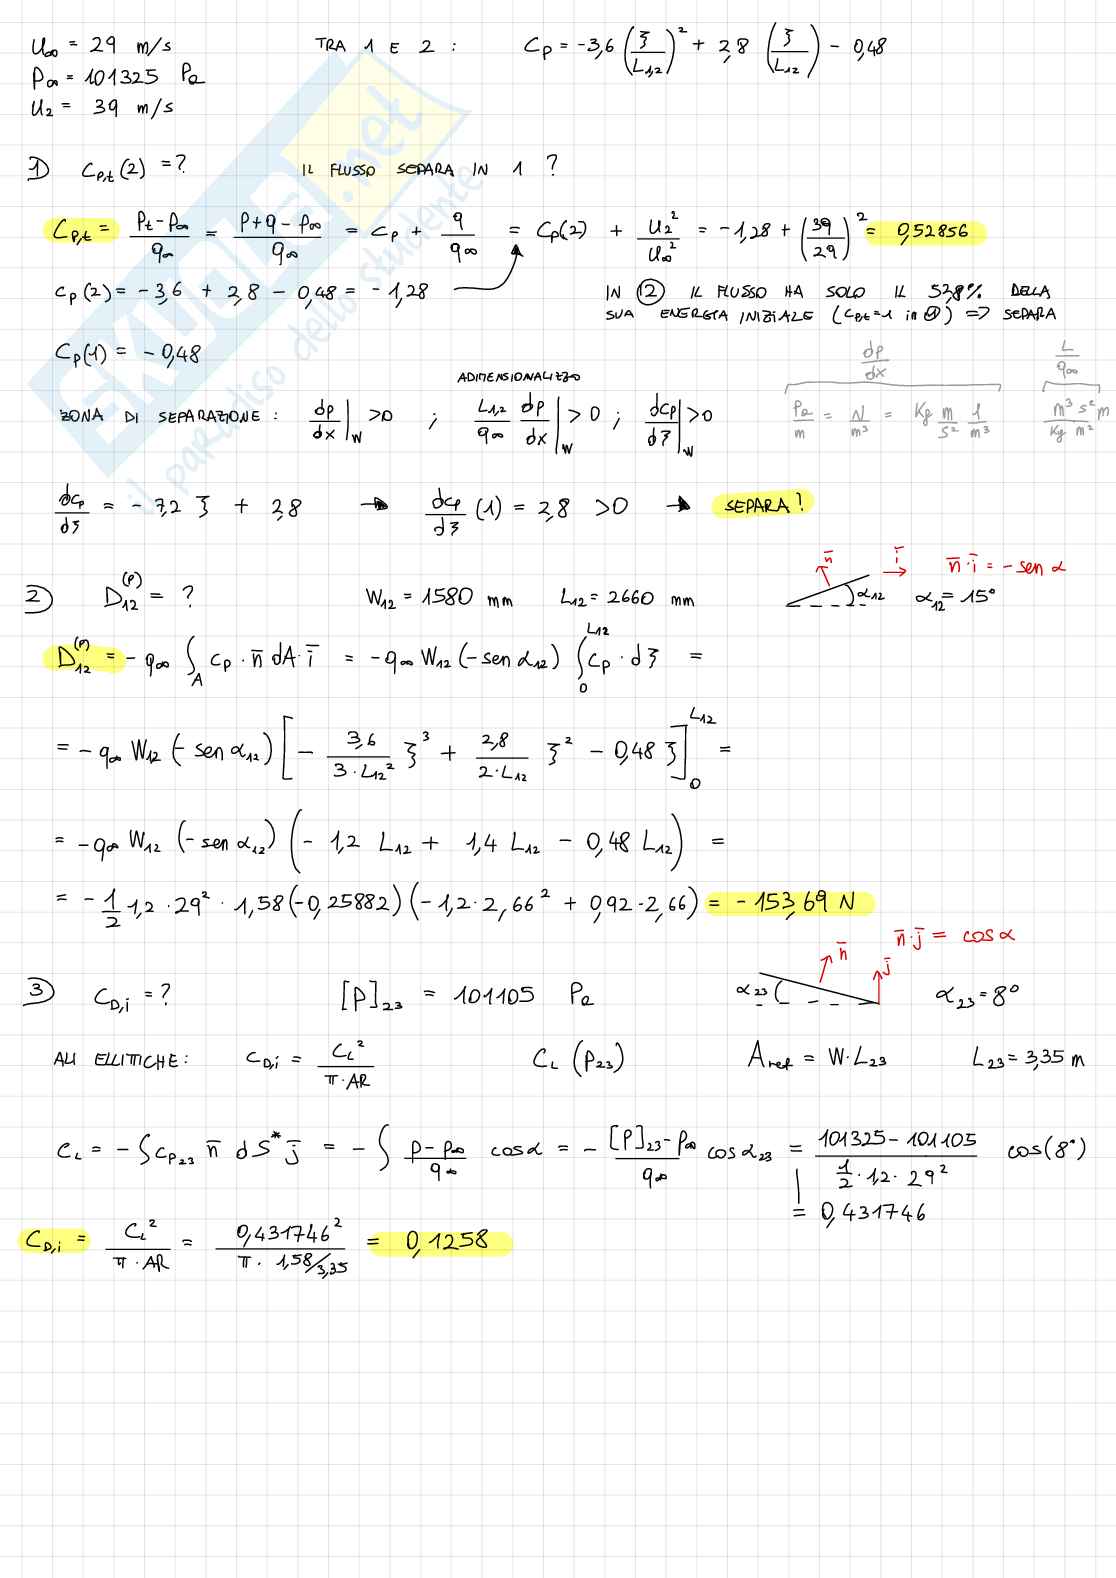 U∞ = 29 m/s TRA 1 E 2 : Cp = -3,6 (ξ/L1,2)² + 2,8 (ξ/L12) - 0,48
P∞ = 101325 Pa
U2 = 39 m/s
1) Cp,t (2) = ? IL FLUSSO SEPARA IN 1 ?
Cp,t = (Pt - P∞)/q∞ = (P+q - P∞)/q∞ = Cp + q/q∞ = Cp(2) + U2²/U∞² = -1,28 + (39/29)² = 0,52856
Cp(2) = -3,6 + 2,8 - 0,48 = -1,28 IN ② IL FLUSSO HA SOLO IL 52,8% DELLA
SUA ENERGIA INIZIALE (Cpt=1 in ①) => SEPARA
Cp(1) = -0,48 dp/dx L/q∞
ADIMENSIONALIZZO
ZONA DI SEPARAZIONE : dp/dx|w >0 ; L1,2/q∞ dp/dx|w >0 ; dCp/dξ|w >0 Pa/m = N/m³ = Kg m/s² 1/m³ m³ s² m/Kg m²
dCp/dξ = -7,2 ξ + 2,8 → dCp/dξ (1) = 2,8 >0 → SEPARA!
n̄ ī n̄·ī = -sen α
2) D12^(P) = ? W12 = 1580 mm L12 = 2660 mm α12 α12 = 15°
D12^(P) = -q∞ ∫A Cp · n̄ dA · ī = -q∞ W12 (-sen α12) ∫0^L12 Cp · dξ =
= -q∞ W12 (-sen α12) [ - 3,6/(3·L12²) ξ³ + 2,8/(2·L12) ξ² - 0,48 ξ ]0^L12 =
= -q∞ W12 (-sen α12) ( -1,2 L12 + 1,4 L12 - 0,48 L12 ) =
= -1/2 1,2 · 29² · 1,58 (-0,25882) (-1,2 · 2,66² + 0,92 · 2,66) = -153,69 N
n̄ j̄ n̄·j̄ = cos α
3) CD,i = ? [P]23 = 101105 Pa α23 α23 = 8°
ALI ELLITTICHE : CD,i = CL²/(π·AR) CL (P23) Aref = W·L23 L23 = 3,35 m
CL = -∫ Cp23 n̄ dS* j̄ = -∫ (P-P∞)/q∞ cos α = -([P]23 - P∞)/q∞ cos α23 = (101325 - 101105)/(1/2 · 1,2 · 29²) cos(8°)
= 0,431746
CD,i = CL²/(π·AR) = 0,431746²/(π · 1,58/3,35) = 0,1258
SKUOLA.net
il paradiso dello studente